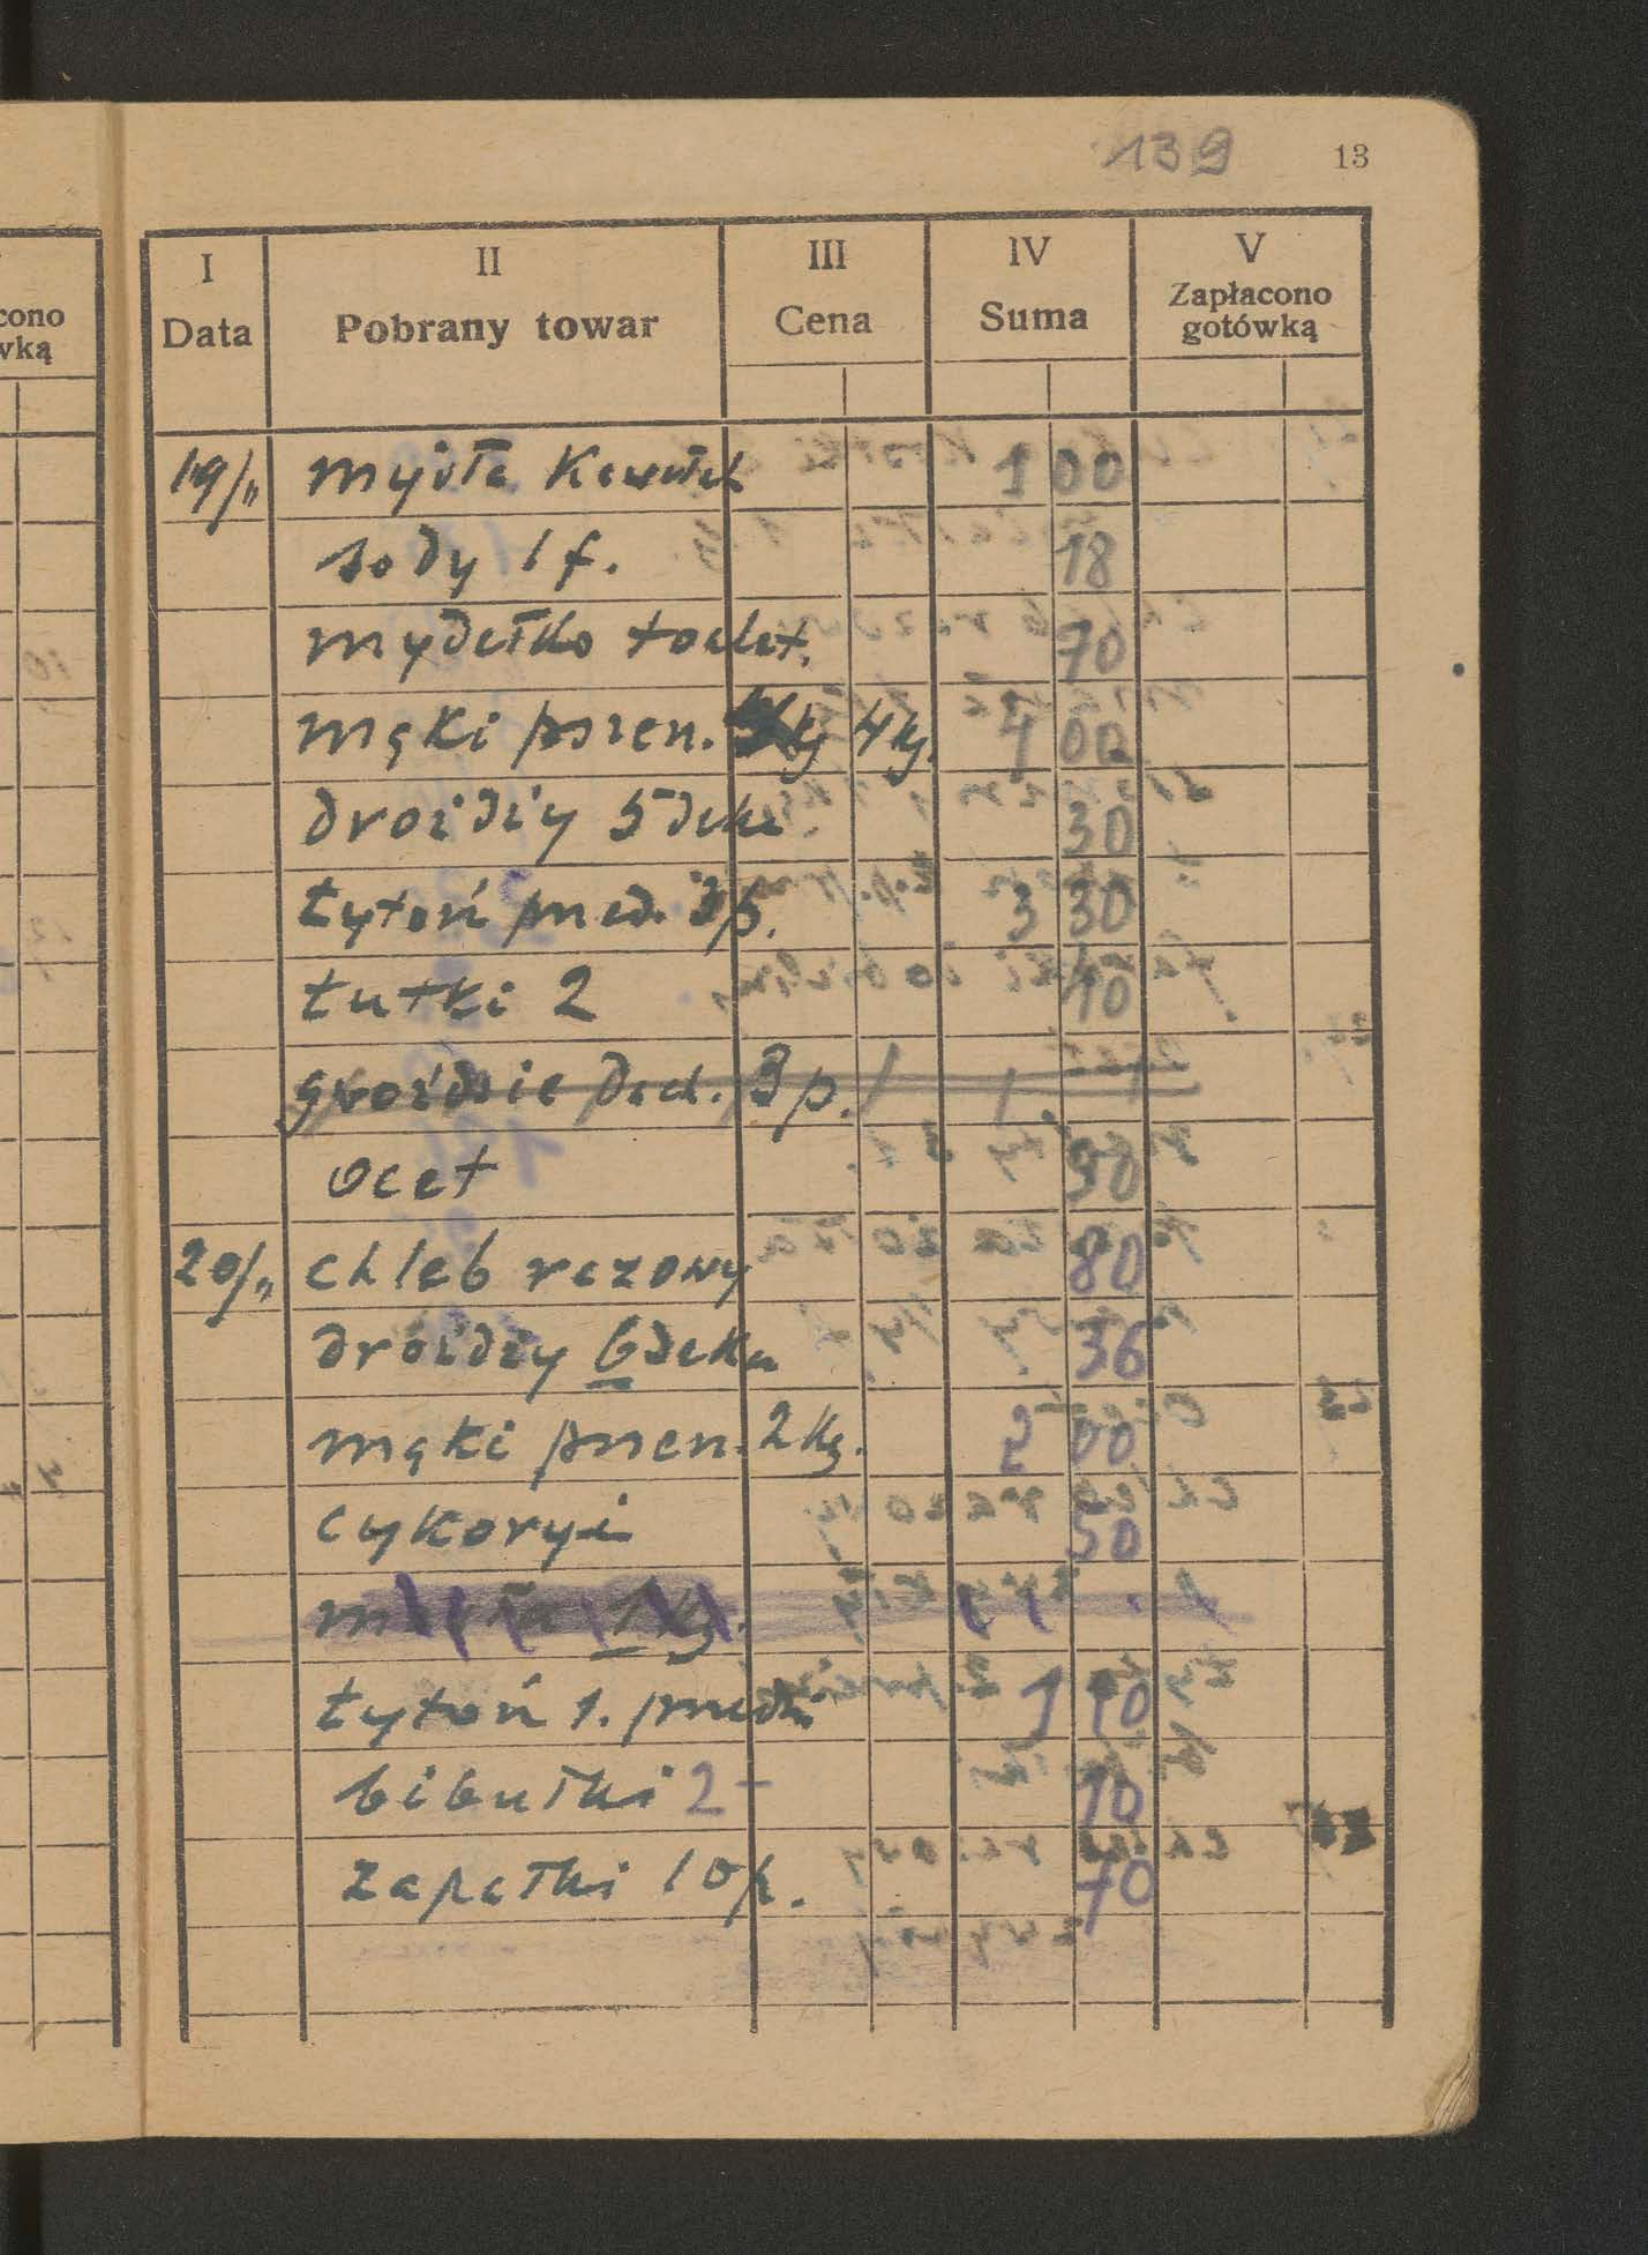 139 13
I II III IV V
Data Pobrany towar Cena Suma Zapłacono gotówką
cono
wką
19/" mydła kawałek 1 00
sody 1 f. 18
mydełko toalet. 70
mąki pszen. 4 kg. 4 00
drożdży 5 deka 30
tytoń pned. 3 p. 3 30
tutki 2 10
gwoździe 3 p.
ocet 98
20/" chleb razowy 80
drożdży 6 deka 36
mąki pszen. 2 kg. 2 00
cykoryi 50
1 kg.
tytoń 1. 1 10
bibułki 2 - 10
zapałki 10 p. 70